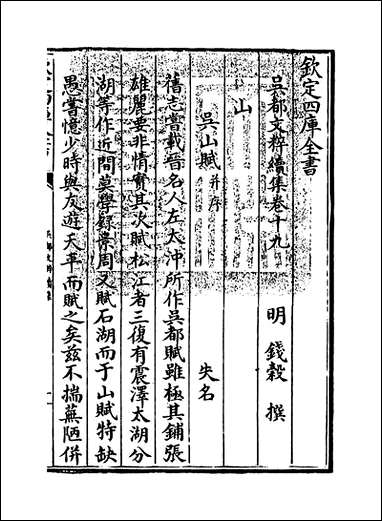 欽定四庫全書
吳都文粹續集卷十九
明 錢穀 撰
山
吳山賦并序
失名
舊志嘗載晉名人左太沖所作吳都賦雖極其鋪張
雄麗要非情實其次賦松江者三復有震澤太湖分
湖等作近間莫學録景周又賦石湖而于山賦特缺
愚嘗憶少時與友遊天平而賦之矣茲不揣蕪陋併